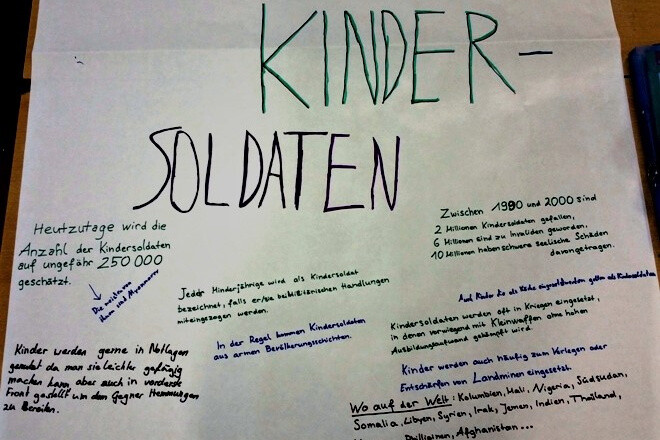 KINDER-
SOLDATEN
Heutzutage wird die
Anzahl der Kindersoldaten
auf ungefähr 250 000
geschätzt.
Die meisten von
ihnen sind Myanmaren
Zwischen 1990 und 2000 sind
2 Millionen Kindersoldaten gefallen,
6 Millionen sind zu Invaliden geworden,
10 Millionen haben schwere seelische Schäden
davongetragen.
Jeder Minderjährige wird als Kindersoldat
bezeichnet, falls er/sie bei militärischen Handlungen
miteingezogen werden.
In der Regel kommen Kindersoldaten
aus armen Bevölkerungsschichten.
Auch Kinder die als Köche eingesetzt werden gelten als Kindersoldaten
Kindersoldaten werden oft in Kriegen eingesetzt,
in denen vorwiegend mit Kleinwaffen ohne hohen
Ausbildungsaufwand gekämpft wird.
Kinder werden auch häufig zum Verlegen oder
Entschärfen von Landminen eingesetzt.
Kinder werden gerne in Notlagen
da man sie leichter gefügig
machen kann aber auch in vorderste
Front gestellt um den Gegner Hemmungen
zu Bereiten.
Wo auf der Welt: Kolumbien, Mali, Nigeria, Südsudan,
Somalia, Libyen, Syrien, Irak, Jemen, Indien, Thailand,
Phillipinen, Afghanistan...